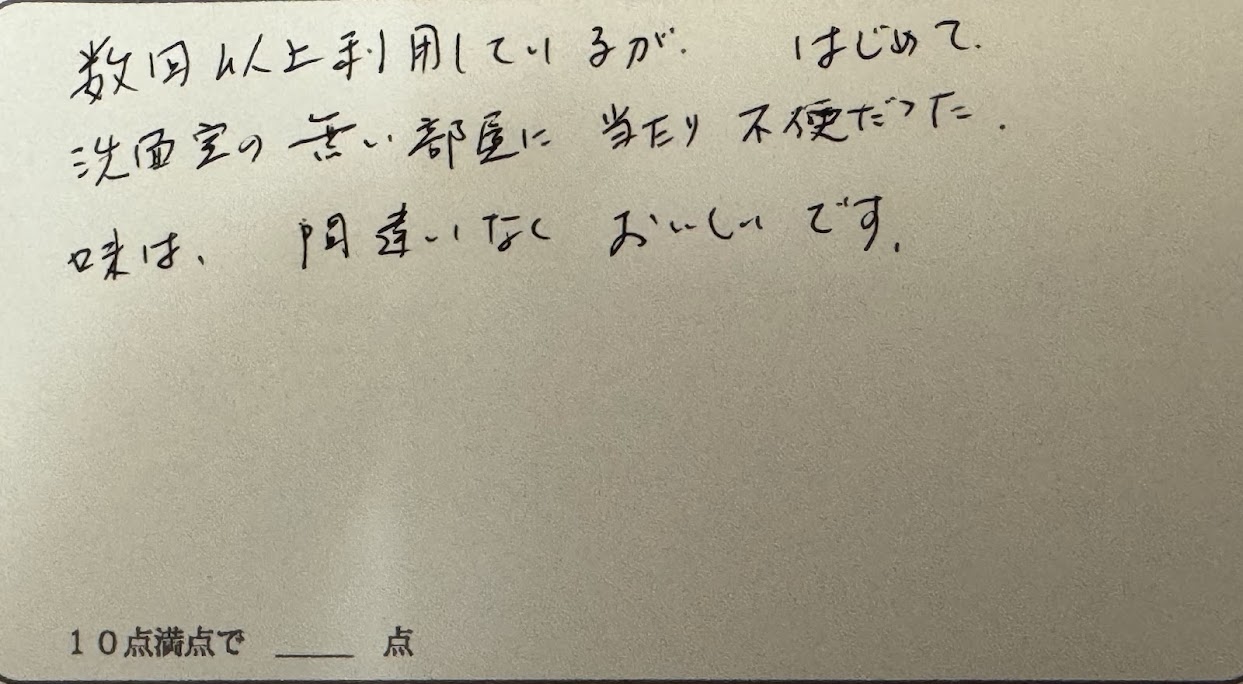 数回以上利用しているが、 はじめて、
洗面室の無い部屋に当たり不便だった.
味は、間違いなくおいしいです.
10点満点で ____ 点